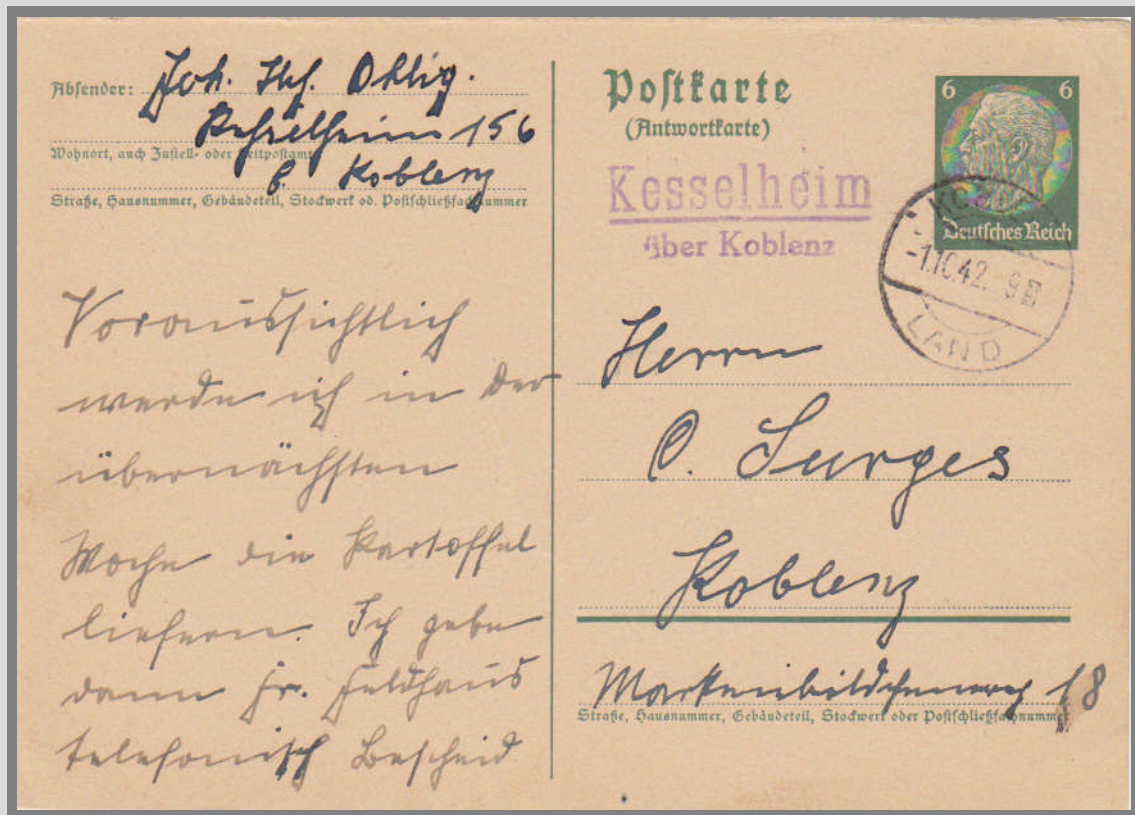 Absender: Joh. Ohlig.
Kesselheim 156
Wohnort, auch Zustell- oder Leitpostamt
b. Koblenz
Straße, Hausnummer, Gebäudeteil, Stockwerk od. Postschließfachnummer
Voraussichtlich
werde ich in der
übernächsten
Woche die Kartoffel
liefern. Ich gebe
dann Fr. Feldhaus
telefonisch Bescheid
Postkarte
(Antwortkarte)
6 6
Deutsches Reich
Kesselheim
über Koblenz
-1.10.42.-9
LAND
Herrn
C. Surges
Koblenz
Markenbildchenweg 18
Straße, Hausnummer, Gebäudeteil, Stockwerk oder Postschließfachnummer